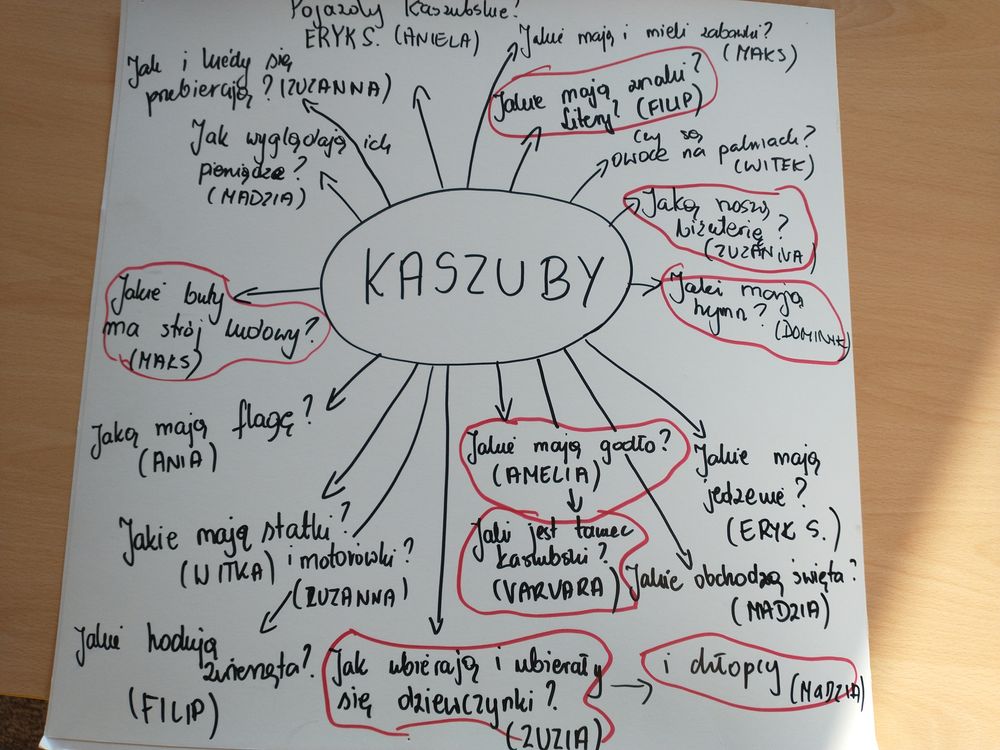 Pojazdy kaszubskie?
ERYK S. (ANIELA)
Jakie mają i mieli zabawki?
(MAKS)
Jak i kiedy się
przebierają? (ZUZANNA)
Jakie mają znaki?
litery? (FILIP)
Jak wyglądają ich
pieniądze?
(MADZIA)
Czy są
owoce na palmach?
(WITEK)
Jaką noszą
biżuterię?
(ZUZANNA)
KASZUBY
Jakie buty
ma strój ludowy?
(MAKS)
Jaki mają
hymn?
(DOMINIK)
Jaką mają flagę?
(ANIA)
Jakie mają godło?
(AMELIA)
Jakie mają
jedzenie?
(ERYK S.)
Jakie mają statki?
(WITKA) i motorówki?
(ZUZANNA)
Jaki jest taniec
kaszubski?
(VARVARA)
Jakie obchodzą święta?
(MADZIA)
Jakie hodują
zwierzęta?
(FILIP)
Jak ubierają i ubierały
się dziewczynki?
(ZUZIA)
i chłopcy
(MADZIA)